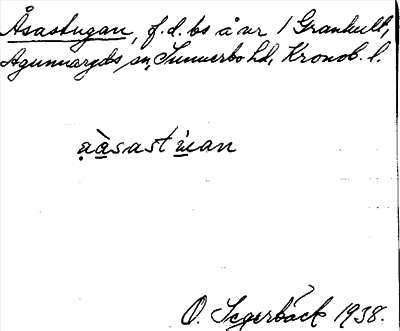 Åsastugan, f.d. bs å nr 1 Grankull,
Agunnaryds sn, Sunnerbo hd, Kronob. l.
ạà̠sastu̠̇an
O. Segerbäck 1938.